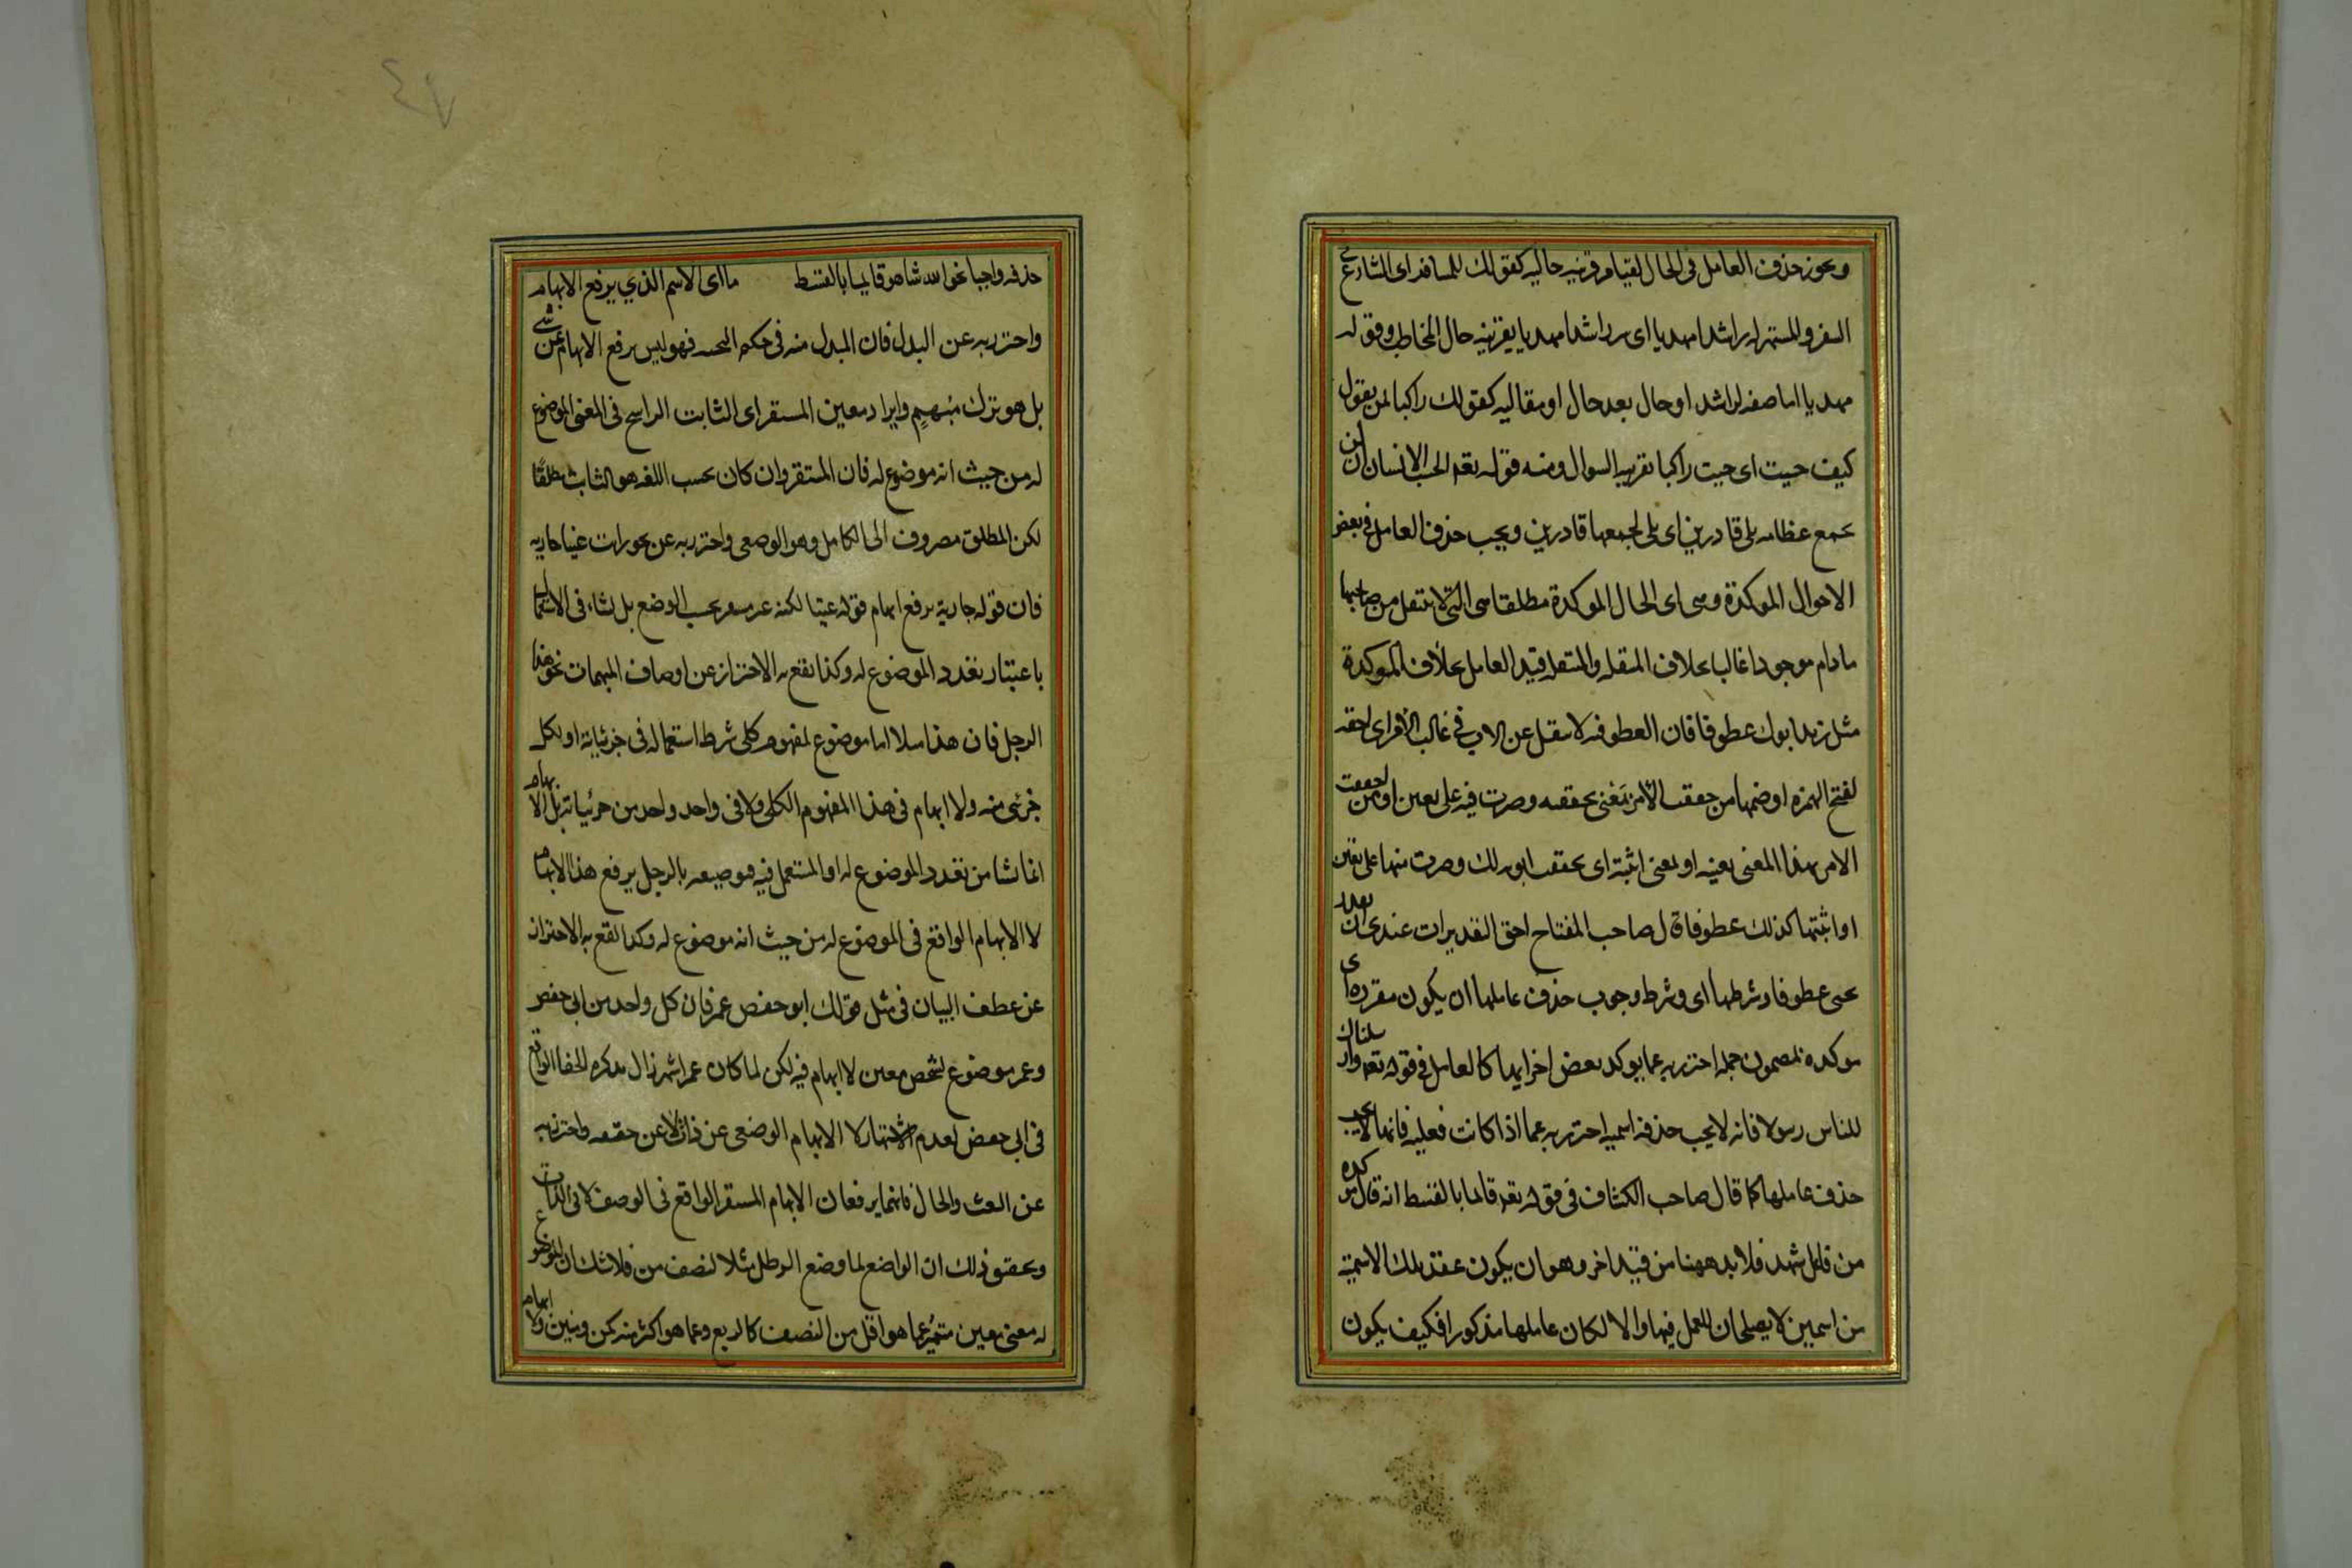 ويجوز حذف العامل فى الحال لقيام قرينه حاليه كقولك للمسافر اى الشارع فى
السفر والمتهيئ له راشدا مهديا اى سر راشدا مهديا بقرينه حال المخاطب وقوله
مهديا اما صفه لراشدا او حال بعد حال او مقاليه كقولك راكبا لمن يقول
كيف جيت اى جيت راكبا بقرينه السوال ومنه قوله تعه ايحسب الانسان ان لن
نجمع عظامه بلى قادرين اى بلى نجمعها قادرين ويجب حذف العامل فى بعض
الاحوال الموكدة وهى اى الحال الموكدة مطلقا هى التى لا ينتقل من صاحبها
مادام موجودا غالبا بخلاف المنتقله والمنتقله قيد العامل بخلاف الموكدة
مثل زيد ابوك عطوفا فان العطوفه لا ينتقل عن الاب فى غالب الامر اى احقه
لفتح الهمزه او ضمها من حققت الامر بمعنى تحققته وصرت فيه على يقين او من احققت
الامر بهذا المعنى بعينه او بمعنى اثبته اى تحققت ابوته لك وصرت منها على يقين
او اثبتها كذلك عطوفا قال صاحب المفتاح احق التقديرات عندى ان يقدر
يحنى عطوفا وشرطها اى وشرط وجوب حذف عاملها ان يكون مقررة اى
موكده لمضمون جمله احترز به عما يوكد بعض اجزايها كالعامل فى قوله تعه وارسلناك
للناس رسولا فانه لا يجب حذفه اسميه احترز به عما اذا كانت فعليه فانها لا يجب
حذف عاملها كما قال صاحب الكشاف فى قوله تعه قائما بالقسط انه حال موكده
من فاعل شهد فلا بد ههنا من قيد اخر وهو ان يكون عقد تلك الاسمية
من اسمين لا يصلحان للعمل فيها والا لكان عاملها مذكورا فكيف يكون
حذفه واجبا نحو الله شاهد قايما بالقسط ما اى الاسم الذى يرفع الابهام
واحترز به عن البدل فان المبدل منه فى حكم التنحيه فهو ليس يرفع الابهام عن شى
بل هو ترك مبهم وايراد معين المستقر اى الثابت الراسخ فى المعنى الموضوع
له من حيث انه موضوع له فان المستقر وان كان بحسب اللغه هو الثابت مطلقا
لكن المطلق مصروف الى الكامل وهو الوضعى واحترز به عن نحو رايت عينا جاريه
فان قوله جارية يرفع ابهام قوله عينا لكنه غير مستقر بحسب الوضع بل نشاء فى الاستعمال
باعتبار تعدد الموضوع له وكذا يقع به الاحتراز عن اوصاف المبهمات نحو هذا
الرجل فان هذا مثلا اما موضوع لمفهوم كلى شرط استعماله فى جزئياته او لكل
جزئى منه ولا ابهام فى هذا المفهوم الكلى ولا فى واحد واحد من جزئياته بل الابهام
انما نشا من تعدد الموضوع له او المستعمل فيه فوصيفه بالرجل يرفع هذا الابهام
لا الابهام الواقع فى الموضوع له من حيث انه موضوع له وكذا يقع به الاحتراز
عن عطف البيان فى مثل قولك ابو حفص عمر فان كل واحد من ابى حفص
وعمر موضوع لشخص معين لا ابهام فيه لكن لما كان عمر اشهر زال بذكره الخفا الواقع
فى ابى حفص لعدم الاشتهار لا الابهام الوضعى عن ذات لا عن صفه واحترز به
عن النعت والحال فانهما يرفعان الابهام المستقر الواقع فى الوصف لا فى الذات
وتحقيق ذلك ان الواضع لما وضع الرطل مثلا لنصف من فلا شك ان الموضوع
له معنى معين متميز عما هو اقل من النصف كالربع وعما هو اكثر منه كمن ومنين ولا ابهام